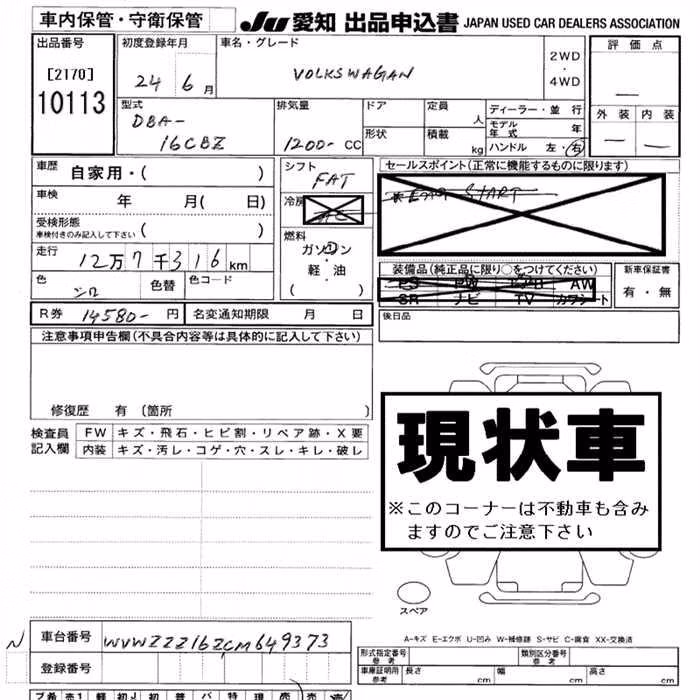 車内保管・守衛保管 JU 愛知 出品申込書 JAPAN USED CAR DEALERS ASSOCIATION
出品番号 初度登録年月 車名・グレード 評価点
[2170] 24 6月 VOLKSWAGAN 2WD・4WD
10113 型式 排気量 ドア 定員 人 ディーラー・並行 外装 内装
DBA- モデル年式 年
16CBZ 1200- CC 形状 積載 kg ハンドル 左・右
車歴 自家用・( ) シフト FAT セールスポイント(正常に機能するものに限ります)
車検 年 月( 日) 冷房 AC START
受検形態 車検付きのみ記入して下さい ( ) 燃料
走行 12万7千316km ガソリン・軽油 ( )
色 シロ 色替 色コード 装備品(純正品に限り○をつけてください) 新車保証書
PS PW AW 有・無
SR ナビ TV カワシート
R券 14580- 円 名変通知期限 月 日 後日品
注意事項申告欄(不具合内容等は具体的に記入して下さい)
修復歴 有(箇所 )
検査員記入欄 FW キズ・飛石・ヒビ割・リペア跡・X要
内装 キズ・汚レ・コゲ・穴・スレ・キレ・破レ
現状車
※このコーナーは不動車も含み
ますのでご注意下さい
スペア
A-キズ E-エクボ U-凹み W-補修跡 S-サビ C-腐食 XX-交換済
N 車台番号 WVWZZZ16ZCM649373
登録番号
形式指定番号 参考 類別区分番号 参考
車庫証明用 参考 長さ cm 幅 cm 高さ cm